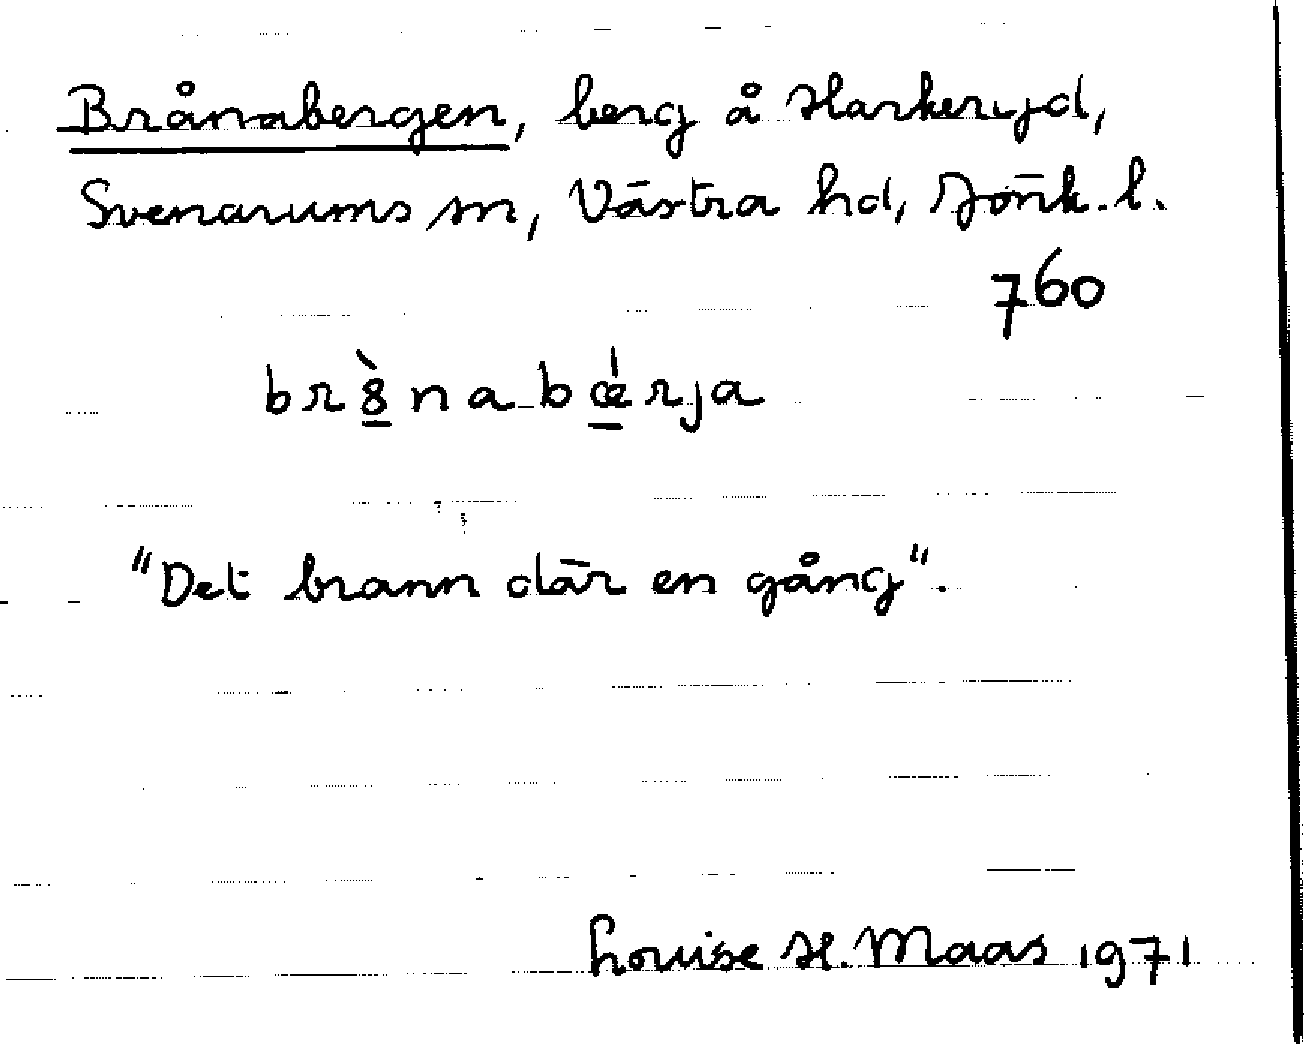 Brånabergen, berg å Harkeryd,
Svenarums sn, Västra hd, Jönk. l.
760
br8̲̀nabǽ̲rja
"Det brann där en gång".
Louise H. Maas 1971